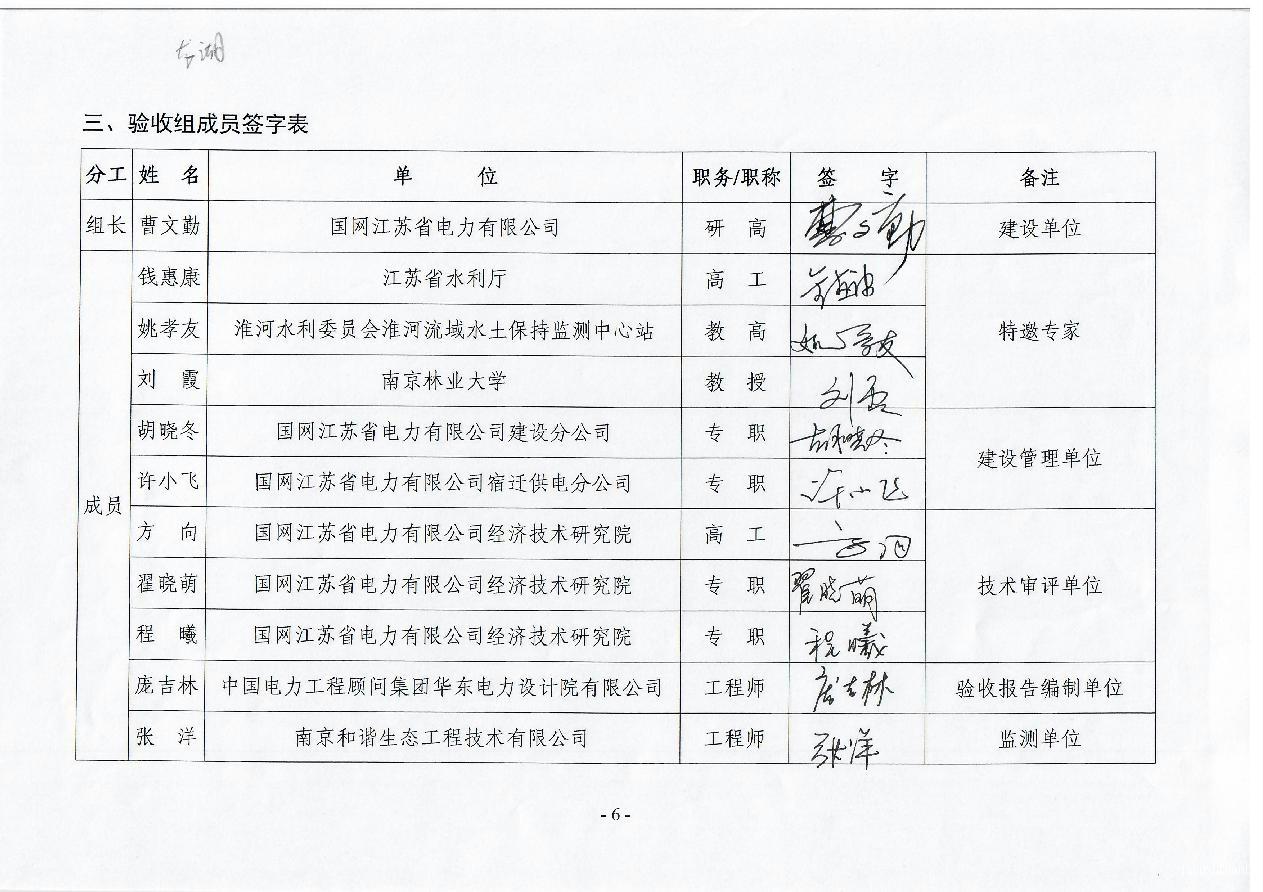 太湖
三、验收组成员签字表
分工 姓 名 单 位 职务/职称 签 字 备注
组长 曹文勤 国网江苏省电力有限公司 研 高 曹文勤 建设单位
钱惠康 江苏省水利厅 高 工
姚孝友 淮河水利委员会淮河流域水土保持监测中心站 教 高 姚孝友 特邀专家
刘 霞 南京林业大学 教 授 刘霞
胡晓冬 国网江苏省电力有限公司建设分公司 专 职 胡晓冬
建设管理单位
许小飞 国网江苏省电力有限公司宿迁供电分公司 专 职 许小飞
成员
方 向 国网江苏省电力有限公司经济技术研究院 高 工 方向
翟晓萌 国网江苏省电力有限公司经济技术研究院 专 职 翟晓萌 技术审评单位
程 曦 国网江苏省电力有限公司经济技术研究院 专 职 程曦
庞吉林 中国电力工程顾问集团华东电力设计院有限公司 工程师 庞吉林 验收报告编制单位
张 洋 南京和谐生态工程技术有限公司 工程师 张洋 监测单位
- 6 -